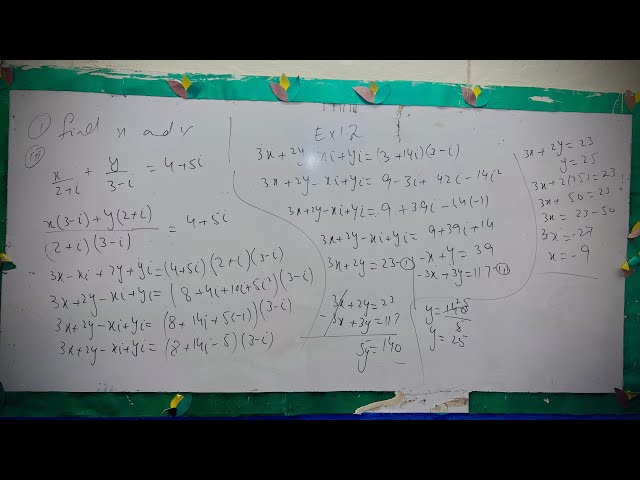 ① find x and y
Ex 1.2
(iii)
x/2+i + y/3-i = 4+5i
x(3-i)+y(2+i)/(2+i)(3-i) = 4+5i
3x-xi+2y+yi=(4+5i)(2+i)(3-i)
3x+2y-xi+yi=(8+4i+10i+5i²)(3-i)
3x+2y-xi+yi=(8+14i+5(-1))(3-i)
3x+2y-xi+yi=(8+14i-5)(3-i)
3x+2y-xi+yi=(3+14i)(3-i)
3x+2y-xi+yi=9-3i+42i-14i²
3x+2y-xi+yi=9+39i-14(-1)
3x+2y-xi+yi=9+39i+14
3x+2y=23-① -x+y=39
-3x+3y=117-(ii)
3x+2y=23
-3x+3y=117
5y=140
y=
y=25
3x+2y=23
y=25
3x+2(25)=23
3x+50=23
3x=23-50
3x=-27
x=-9